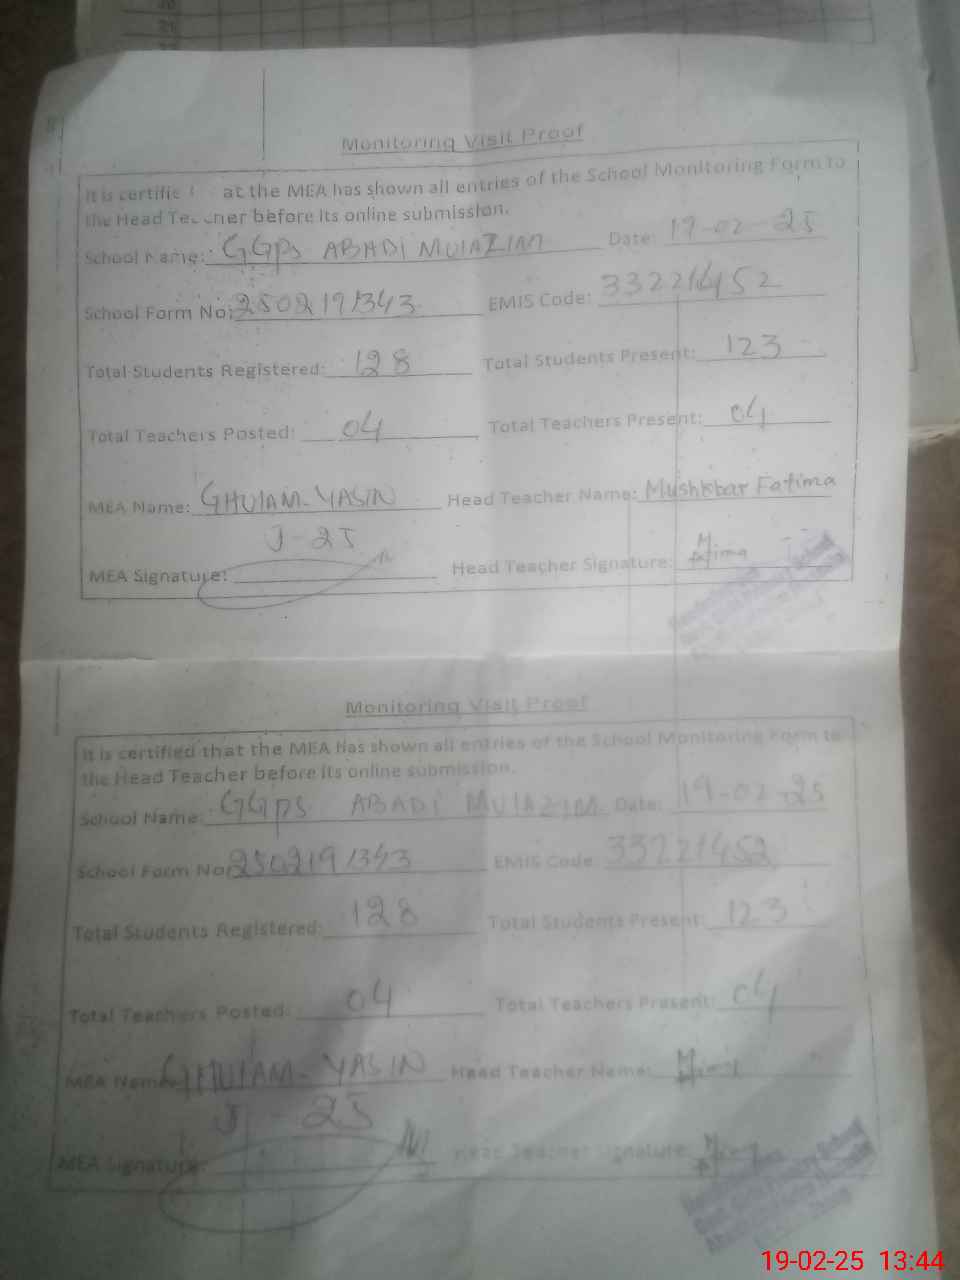 Monitoring Visit Proof
It is certifie at the MEA has shown all entries of the School Monitoring Form to
the Head Teacher before its online submission.
School Name: GGPS ABADI MULAZIM Date: 19-02-25
School Form No: 2502191343 EMIS Code: 33221452
Total Students Registered: 128 Total Students Present: 123
Total Teachers Posted: 04 Total Teachers Present: 04
MEA Name: GHULAM-YASIN Head Teacher Name: Mushkbar Fatima
J-25
MEA Signature: Head Teacher Signature:
Monitoring Visit Proof
It is certified that the MEA has shown all entries of the School Monitoring Form to
the Head Teacher before its online submission.
School Name: GGPS ABADI MULAZIM Date: 19-02-25
School Form No 2502191343 EMIS Code: 33221452
Total Students Registered: 128 Total Students Present: 123
Total Teachers Posted: 04 Total Teachers Present: 04
MEA Name GHULAM-YASIN Head Teacher Name:
J-25
MEA Signature: Head Teacher Signature:
19-02-25 13:44